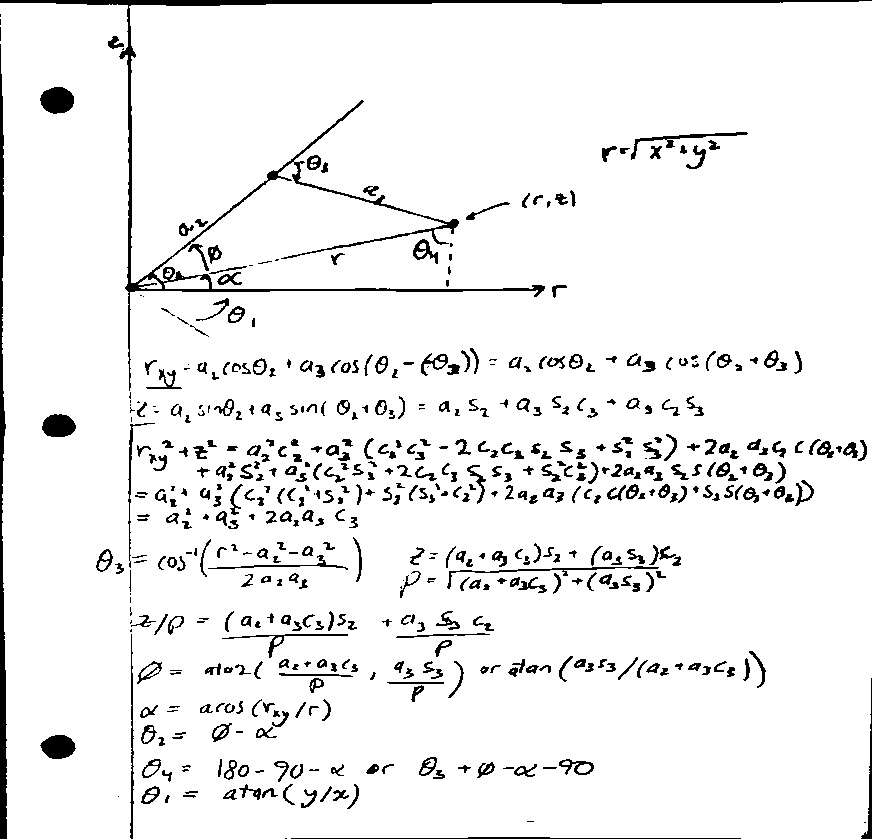 z
r=√x²+y²
θ₃
a₃
(r,z)
a₂
φ
θ₄
r
θ₂
α
r
θ₁
r_xy = a₂cosθ₂ + a₃cos(θ₂-(-θ₃)) = a₂cosθ₂ + a₃cos(θ₂+θ₃)
z = a₂sinθ₂+a₃sin(θ₂+θ₃) = a₂s₂ + a₃s₂c₃ + a₃c₂s₃
r_xy²+z² = a₂²c₂²+a₃²(c₂²c₃² - 2c₂c₃s₂s₃ + s₂²s₃²) + 2a₂a₃c₂c(θ₂+θ₃)
+ a₂²s₂² + a₃²(c₂²s₃² + 2c₂c₃s₂s₃ + s₂²c₃²)+2a₂a₃s₂s(θ₂+θ₃)
= a₂² + a₃²(c₃²(c₂²+s₂²) + s₃²(s₂²+c₂²)) + 2a₂a₃(c₂c(θ₂+θ₃)+s₂s(θ₂+θ₃))
= a₂² + a₃² + 2a₂a₃c₃
θ₃ = cos⁻¹((r²-a₂²-a₃²)/2a₂a₃)
z = (a₂+a₃c₃)s₂ + (a₃s₃)c₂
ρ = √(a₂+a₃c₃)²+(a₃s₃)²
z/ρ = (a₂+a₃c₃)s₂/ρ + a₃s₃c₂/ρ
φ = atan2((a₂+a₃c₃)/ρ, a₃s₃/ρ) or atan(a₃s₃/(a₂+a₃c₃))
α = acos(r_xy/r)
θ₂ = φ-α
θ₄ = 180-90-α or θ₃+φ-α-90
θ₁ = atan(y/x)